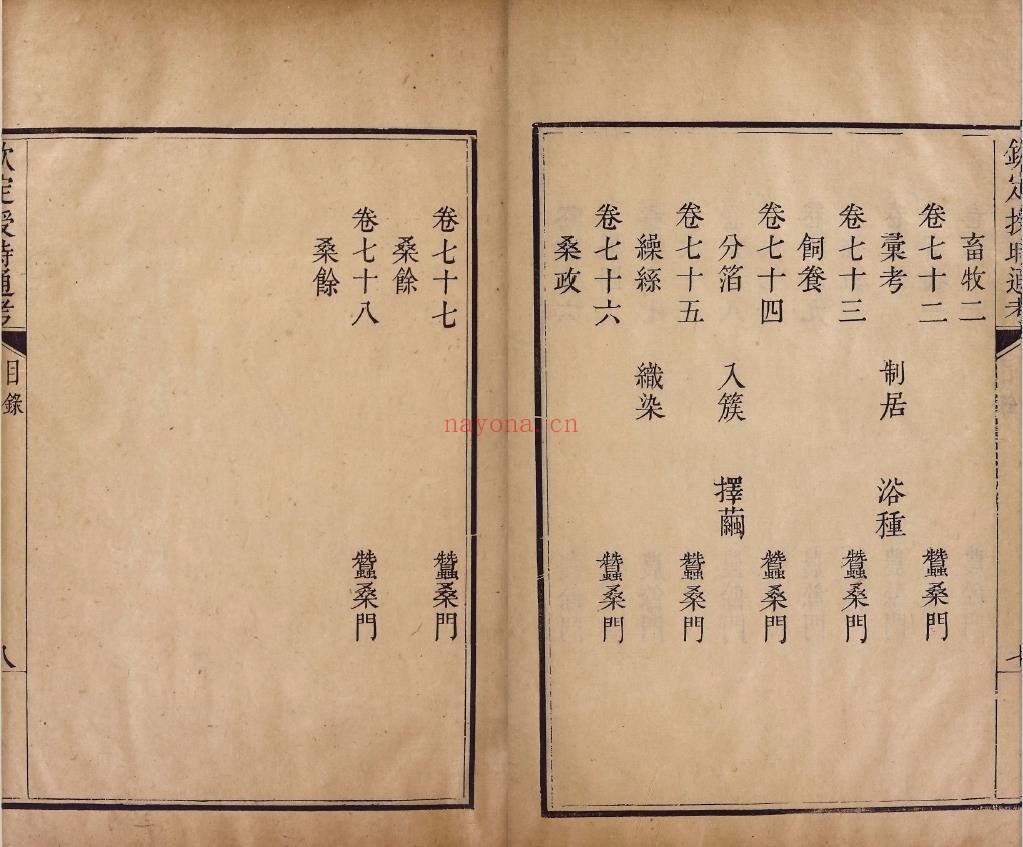 欽定授時通考 目錄 七
畜牧二
卷七十二 蠶桑門
彚考 制居 浴種
卷七十三 蠶桑門
飼養
卷七十四 蠶桑門
分箔 入簇 擇繭
卷七十五 蠶桑門
繰絲 織染
卷七十六 蠶桑門
桑政
卷七十七 蠶桑門
桑餘
卷七十八 蠶桑門
桑餘
欽定授時通考 目錄 八
nayona.cn